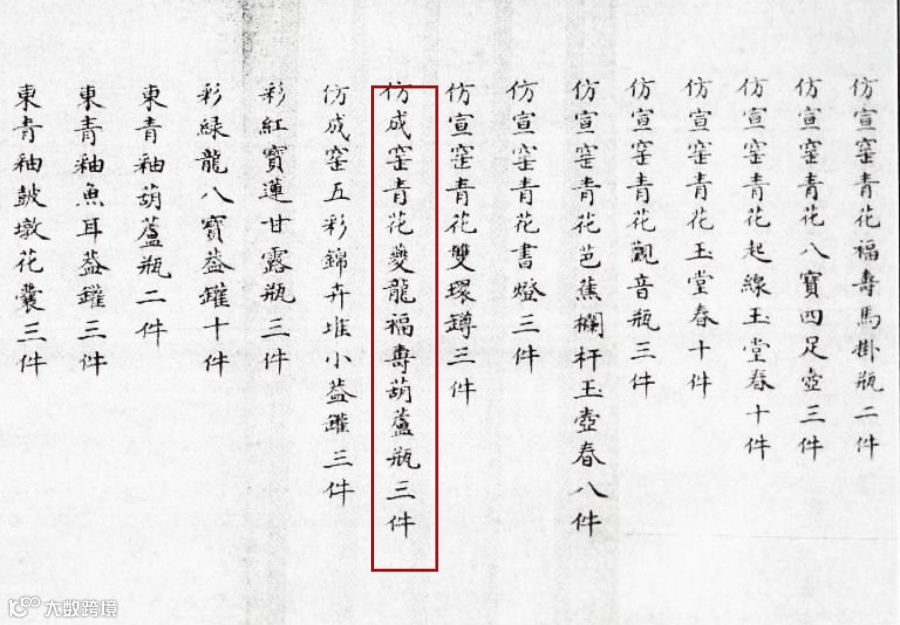 仿宣窑青花福壽馬掛瓶二件
仿宣窑青花八寶四足壺三件
仿宣窑青花起線玉堂春十件
仿宣窑青花玉堂春十件
仿宣窑青花觀音瓶三件
仿宣窑青花芭蕉欄杆玉壺春八件
仿宣窑青花書燈三件
仿宣窑青花雙環罇三件
仿成窑青花夔龍福壽葫蘆瓶三件
仿成窑五彩錦卉堆小蓋罐三件
彩紅寶蓮甘露瓶三件
彩綠龍八寶蓋罐十件
東青釉葫蘆瓶二件
東青釉魚耳蓋罐三件
東青釉皷墩花囊三件
大数跨境